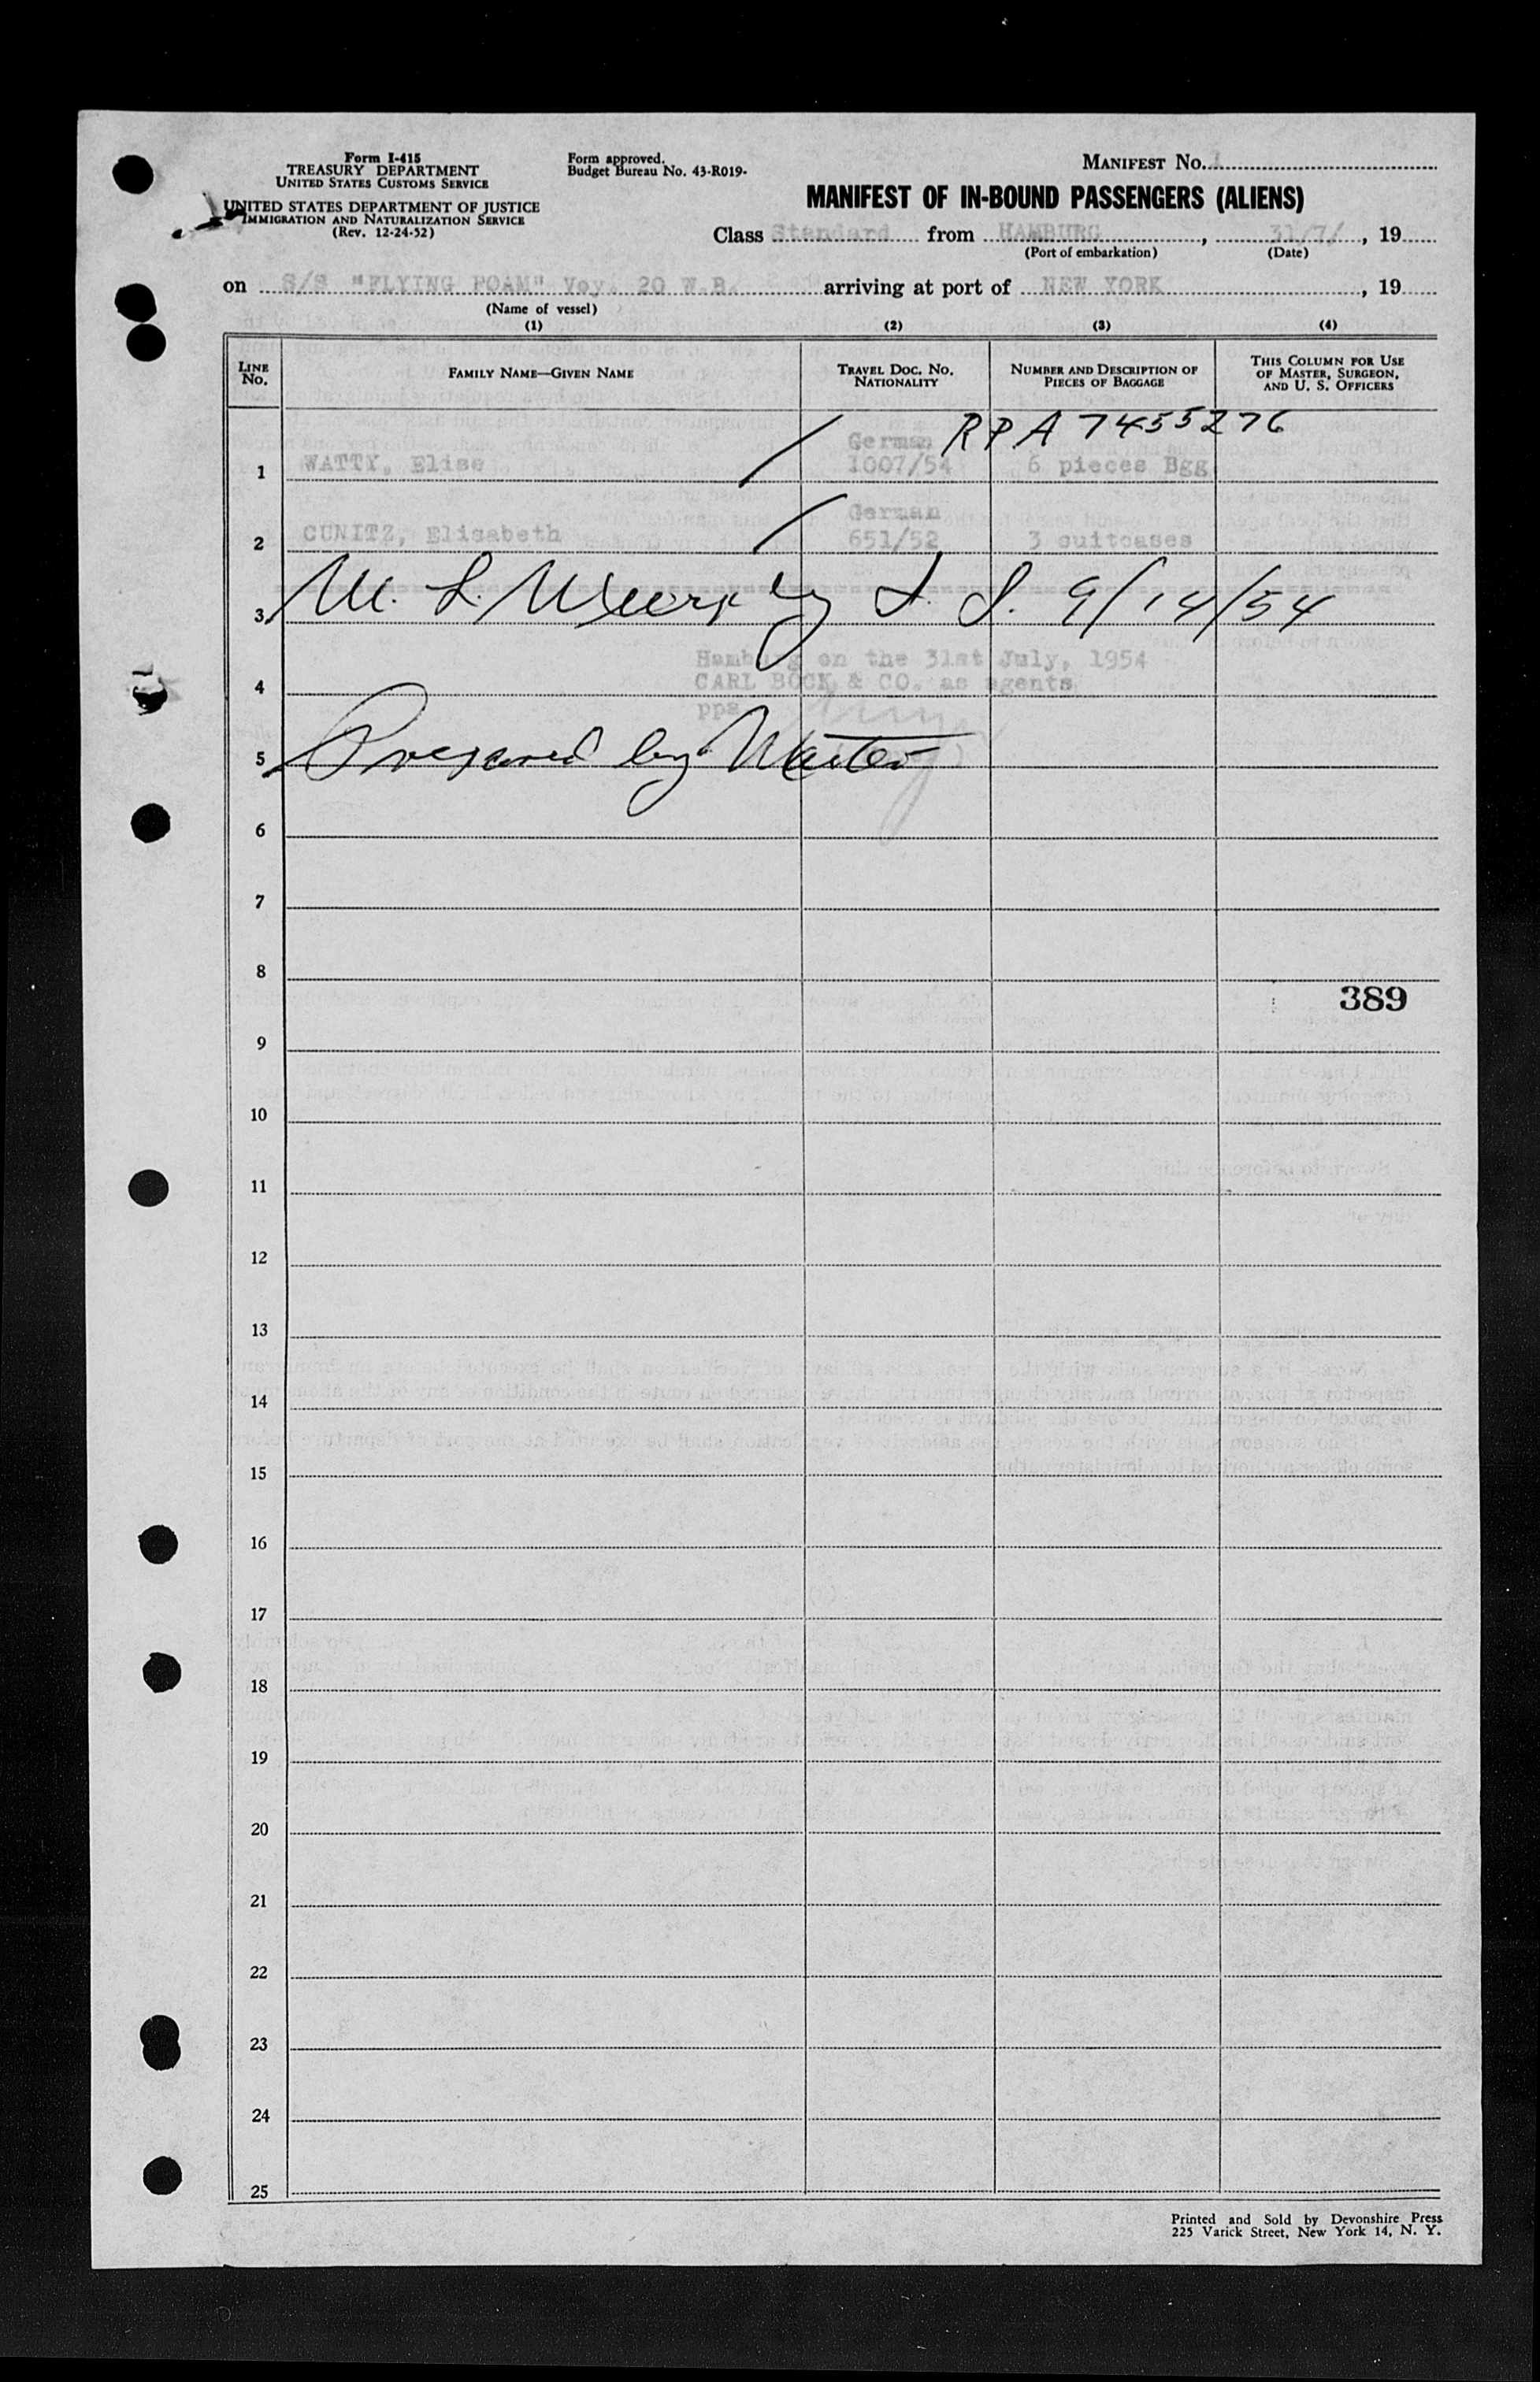 Form I-415
TREASURY DEPARTMENT
UNITED STATES CUSTOMS SERVICE
UNITED STATES DEPARTMENT OF JUSTICE
IMMIGRATION AND NATURALIZATION SERVICE
(Rev. 12-24-52)
Form approved.
Budget Bureau No. 43-R019-
MANIFEST No.
MANIFEST OF IN-BOUND PASSENGERS (ALIENS)
Class Standard from HAMBURG, 31/7/, 19
(Port of embarkation) (Date)
on S/S "FLYING FOAM" Voy. 20 W.B. arriving at port of NEW YORK, 19
(Name of vessel)
(1) (2) (3) (4)
LINE No. FAMILY NAME—GIVEN NAME TRAVEL DOC. No. NATIONALITY NUMBER AND DESCRIPTION OF PIECES OF BAGGAGE THIS COLUMN FOR USE OF MASTER, SURGEON, AND U. S. OFFICERS
RPA 7455276
German
1 WATTY, Elise 1007/54 6 pieces Bgg
German
2 CUNITZ, Elisabeth 651/52 3 suitcases
3 M. L. Murphy 9/14/54
Hamburg on the 31st July, 1954
4 CARL BOCK & CO. as agents
ppa
5 Prepared by Master
6
7
8
389
9
10
11
12
13
14
15
16
17
18
19
20
21
22
23
24
25
Printed and Sold by Devonshire Press
225 Varick Street, New York 14, N. Y.